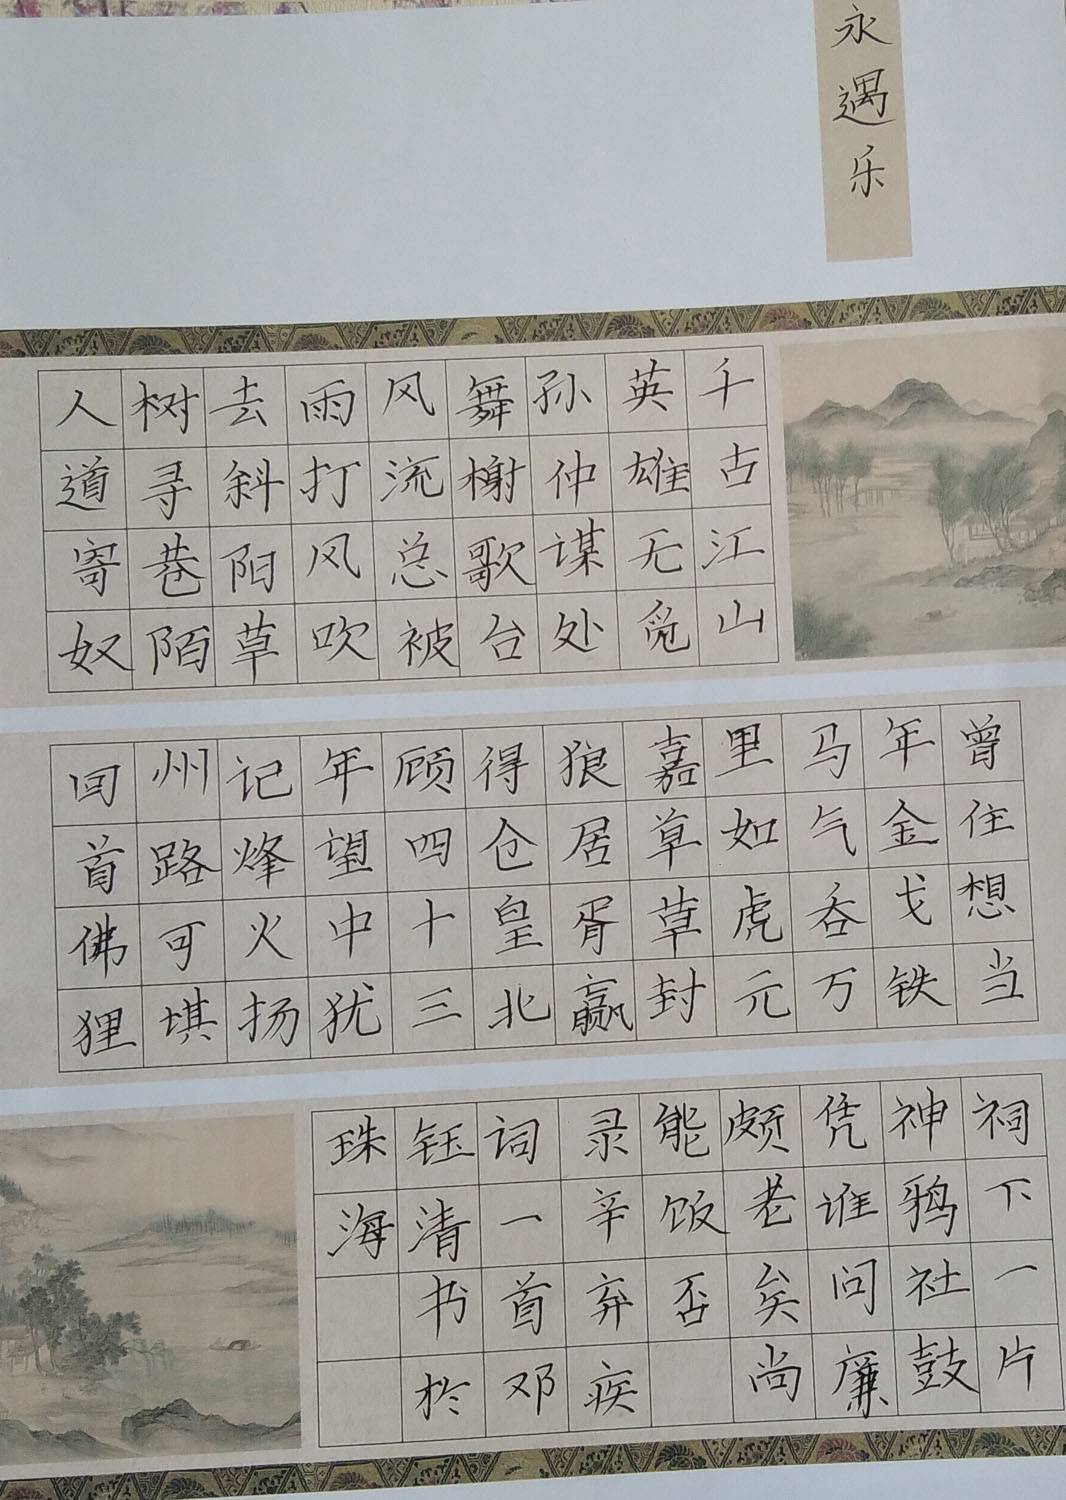 永遇乐
千古江山
英雄无觅
孙仲谋处
舞榭歌台
风流总被
雨打风吹
去斜阳草
树寻巷陌
人道寄奴
曾住想当
年金戈铁
马气吞万
里如虎元
嘉草草封
狼居胥赢
得仓皇北
顾四十三
年望中犹
记烽火扬
州路可堪
回首佛狸
祠下一片
神鸦社鼓
凭谁问廉
颇老矣尚
能饭否
录辛弃疾
词一首邓
钰清书於
珠海